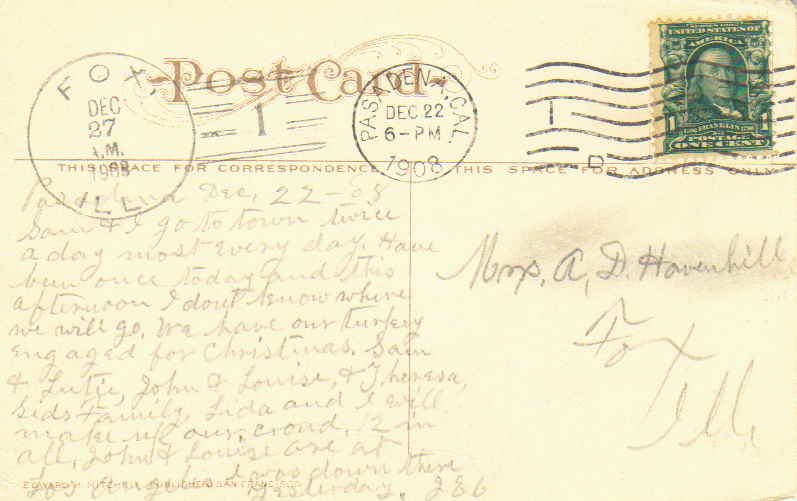 Post Card
FOX,
DEC
27
A.M.
1908
ILL.
1
PASADENA, CAL.
DEC 22
6-PM
1908
D
UNITED STATES OF
AMERICA
1 1
ONE CENT
THIS SPACE FOR CORRESPONDENCE
THIS SPACE FOR ADDRESS ONLY
Pasadena Dec, 22-08
Sam & I go to town twice
a day most every day. Have
been once today and this
afternoon I dont know where
we will go. We have our turkey
engaged for Christmas. Sam
& Lutie, John & Louise, & Theresa,
Sids Family, Lida and I will
make up our croud, 12 in
all, John & Louise are at
Los Angeles I was down there
yesterday,
Mrs, A, D. Havenhill
Fox
Ills
EDWARD H. MITCHELL, PUBLISHER, SAN FRANCISCO